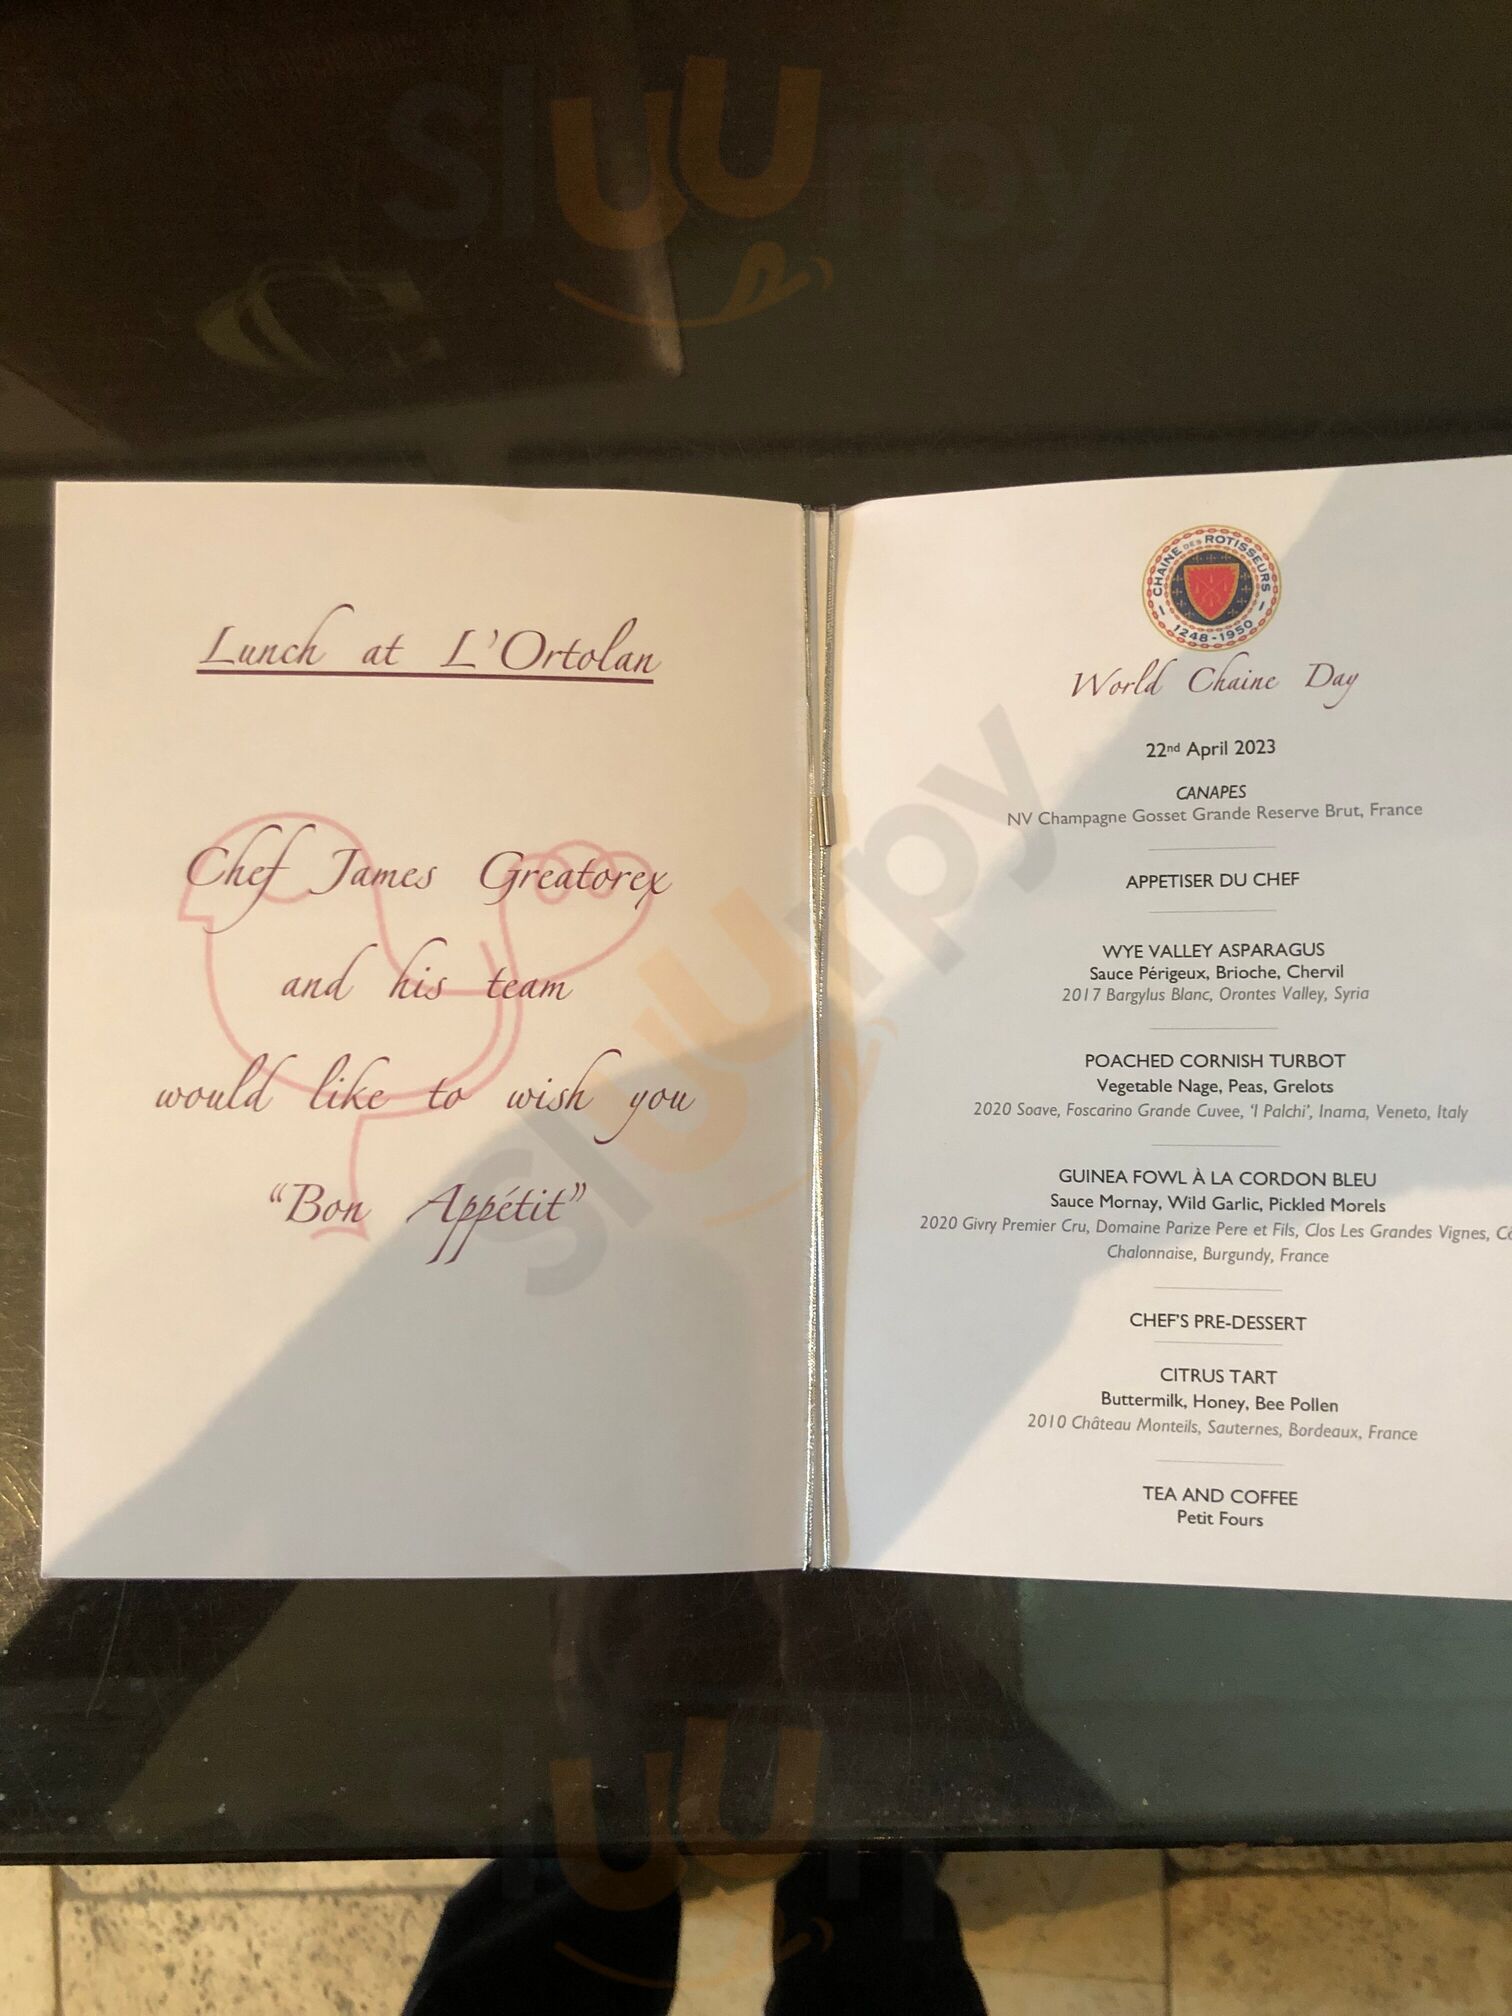 sluurpy
Lunch at L'Ortolan
Chef James Greatorex
and his team
would like to wish you
“Bon Appétit”
CHAINE DES ROTISSEURS
1248 - 1950
World Chaine Day
22nd April 2023
CANAPES
NV Champagne Gosset Grande Reserve Brut, France
APPETISER DU CHEF
WYE VALLEY ASPARAGUS
Sauce Périgeux, Brioche, Chervil
2017 Bargylus Blanc, Orontes Valley, Syria
POACHED CORNISH TURBOT
Vegetable Nage, Peas, Grelots
2020 Soave, Foscarino Grande Cuvee, ‘I Palchi’, Inama, Veneto, Italy
GUINEA FOWL À LA CORDON BLEU
Sauce Mornay, Wild Garlic, Pickled Morels
2020 Givry Premier Cru, Domaine Parize Pere et Fils, Clos Les Grandes Vignes,
Chalonnaise, Burgundy, France
CHEF'S PRE-DESSERT
CITRUS TART
Buttermilk, Honey, Bee Pollen
2010 Château Monteils, Sauternes, Bordeaux, France
TEA AND COFFEE
Petit Fours
sluurpy
sluurpy